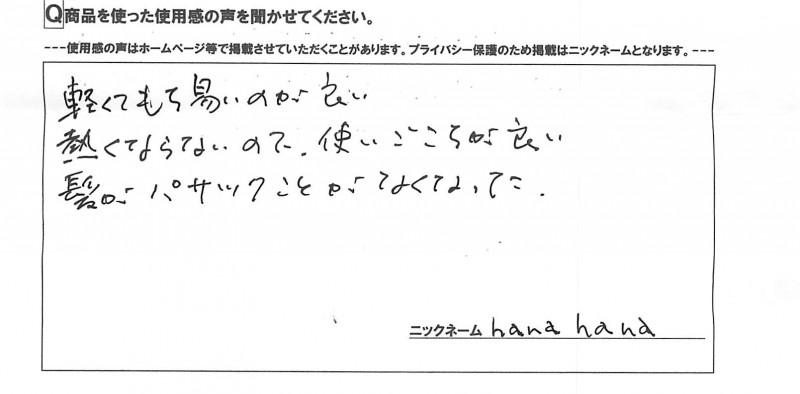 Q商品を使った使用感の声を聞かせてください。
---使用感の声はホームページ等で掲載させていただくことがあります。プライバシー保護のため掲載はニックネームとなります。---
軽くてもち易いのが良い
熱くならないので、使いごこちが良い
髪がパサツクことがなくなった.
ニックネーム hana hana